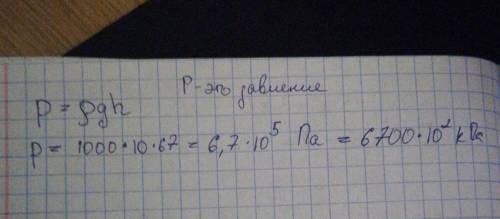 P - это давление
p = ρgh
p = 1000·10·67 = 6,7·10⁵ Па = 6700·10² кPa